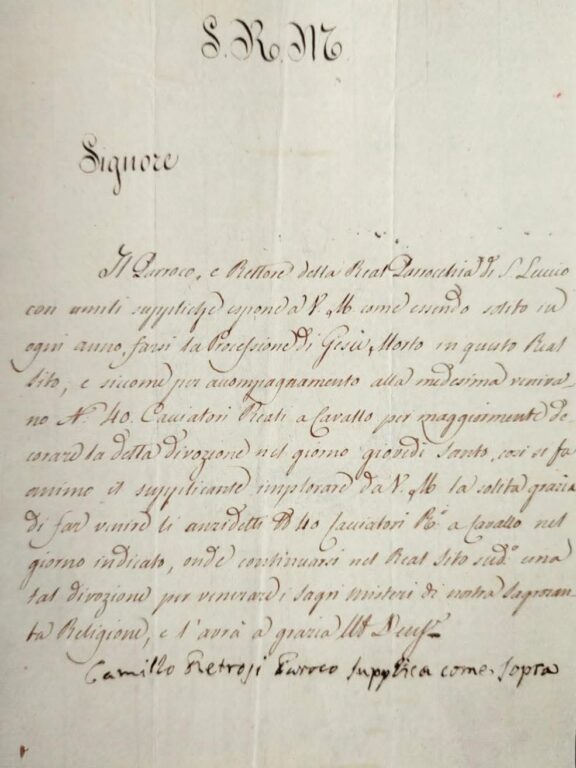 S. R. M.
Signore
Il Parroco, e Rettore della Real Parrocchia di S. Leucio
con umili suppliche espone a V. M. come essendo solito in
ogni anno farsi la Processione di Gesù Morto in questo Real
Sito, e siccome per acompagnamento alla medesima venira-
no N.° 40. Cacciatori Reali a Cavallo per maggiormente de-
corare la detta divozione nel giorno giovedì Santo, così si fa
animo il supplicante implorare da V. M. la solita grazia
di far venire li anzidetti 40 Cacciatori R.i a Cavallo nel
giorno indicato, onde continuarsi nel Real Sito sud.° una
tal divozione per venerare i sagri misteri di nostra Sagrosan-
ta Religione, e l'avrà a grazia Ut Deus
Camillo Petrosi Paroco supplica come sopra